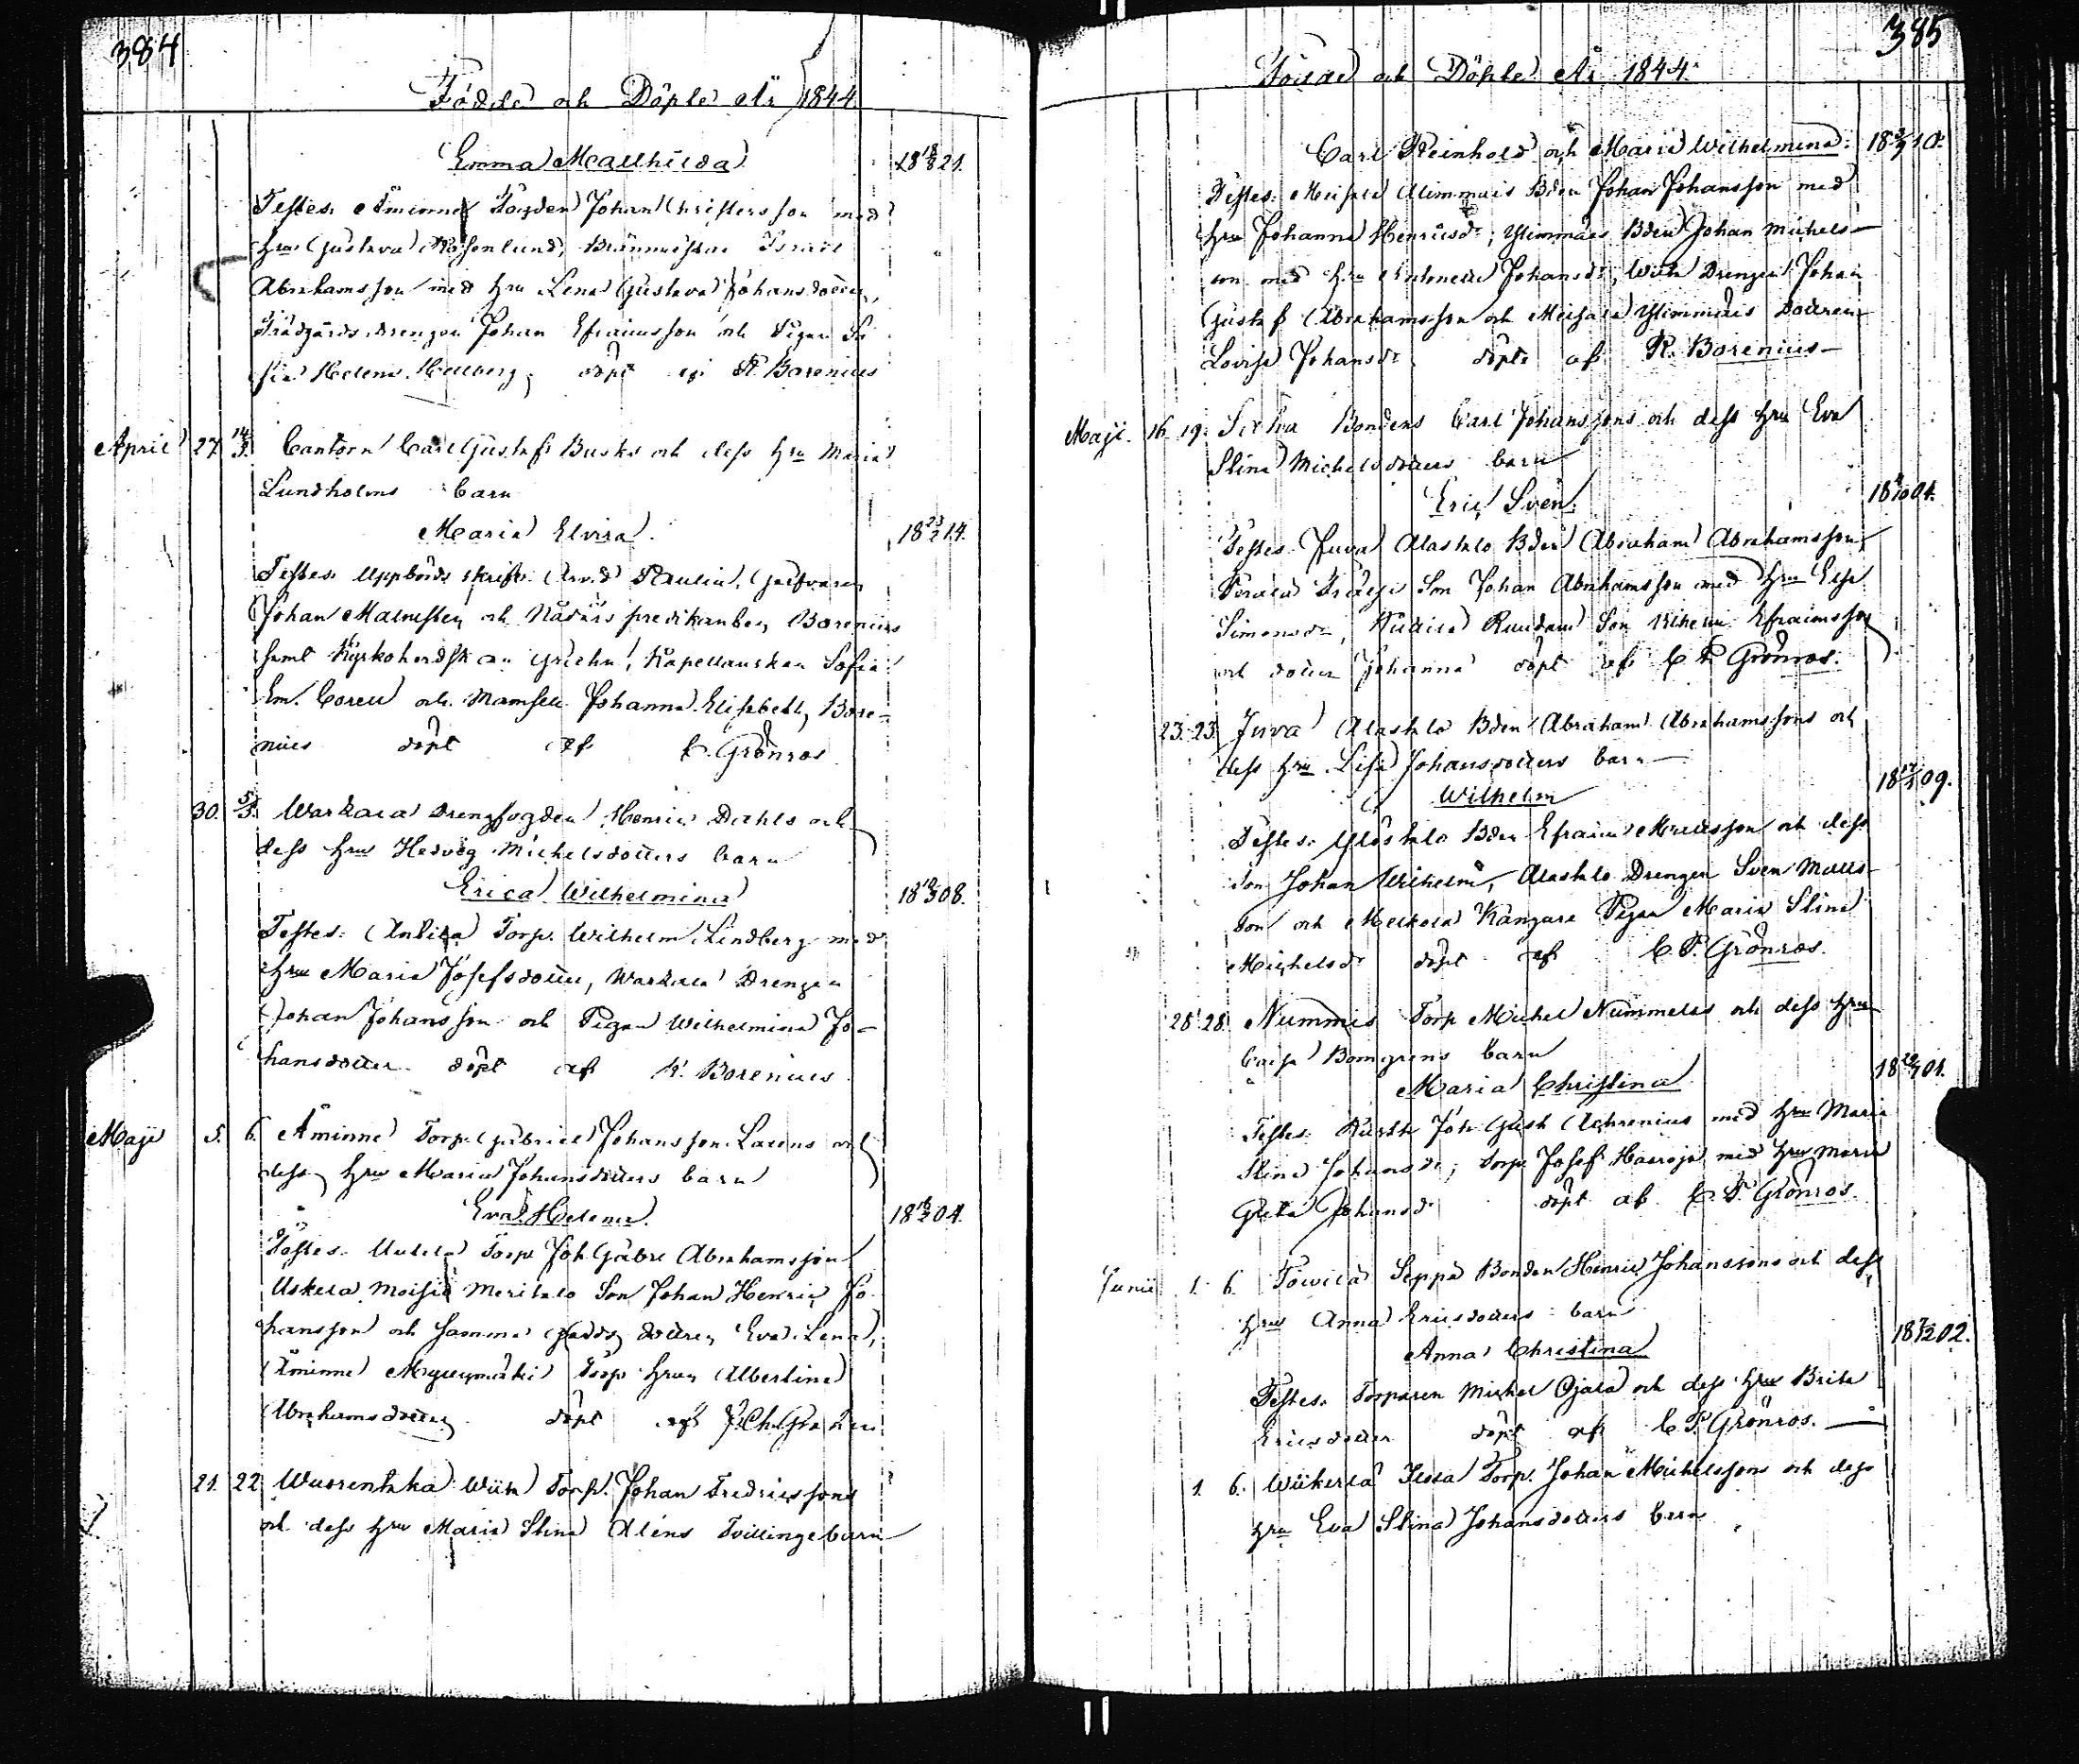 384
Födde och Döpte År 1844
Emma Mathilda 18 18/8 21.
Testes. Åminne Johan Christersson med
hru Gustava Rosenlund, Israel
Abrahamsson med hru Lena Gustava Johansdotter,
Trädgårds drengen Johan Efraimsson och Pigan So
fia Helena Hellberg, döpt af R. Borenius
April 27. 14/5. Cantorn Carl Gustaf Busks och dess hru Maria
Lundholms barn
Maria Elvira. 18 23/2 14.
Testes. Uppbörds skrifv. Arvid Paulin,
Johan Malmsten och Nådårs predikanten Borenius
samt Kyrkoherdskan Grehn, Kapellanskan Sofia
Em. Corell och Mamsell Johanna Elisabeth Bore-
nius döpt af C. Grönros
30. 5/5. Warkaa Drengfogden Henric Dahls och
dess hru Hedvig Michelsdotters barn
Erica Wilhelmina 18 18/3 08.
Testes. Torp. Wilhelm Lindberg med
hru Maria Josefsdotter, Drengen
Johan Johansson och Pigan Wilhelmina Jo-
hansdotter döpt af R. Borenius
Maji 5. 6. Åminne Torp. Gabriel Johansson Larens och
dess hru Maria Johansdotters barn
Eva Helena. 18 04.
Testes. Torp. Joh Gabr Abrahamsson
Uskela Moisio Meritalo Son Johan Henric Jo-
hansson och samma dotter Eva Lena,
Åminne Myllymäki Torp hrun Albertina
Abrahamsdotter döpt af
21. 22 Wuorentaka Torp. Johan Fredricssons
och dess hru Maria Stina Aléns Tvillingebarn
385
Födde och Döpte År 1844.
Carl Reinhold och Maria Wilhelmina. 18 10.
Testes. Bden Johan Johansson med
hru Johanna Henricsdr, Bden Johan Michels-
son med hru Johansdr, Drengen Johan
Gustaf Abrahamsson och dottren
Lovisa Johansdr döpte af R. Borenius
Maji. 16. 19. Bondens Carl Johanssons och dess hru Eva
Stina Michelsdotters barn
Eric Sven. 18 04.
Testes. Juva Alastalo Bden Abraham Abrahamsson
Son Johan Abrahamsson med hru Lisa
Simonsdr, Son Vilhelm Efraimsson
och dotter Johanna döpt af C P Grönros.
23. 23. Juva Alastalo Bden Abraham Abrahamssons och
dess hru Lisa Johansdotters barn
Wilhelm 18 09.
Testes. Ylöstalo Bden Efraim och dess
Son Johan Wilhelm, Alastalo Drengen Sven Matts-
son och Kangare Pigan Maria Stina
Michelsdr döpt af C. P. Grönros.
28. 28. Nummis Torp Michel Nummelas och dess hru
Caisa Bomgrens barn
Maria Christina 18 01.
Testes. Joh Gust Achrenius med hru Maria
Stina Johansdr, Torp Josef Haaroja med hru Maria
Greta Johansdr döpt af C. P. Grönros.
Junii 1. 6. Seppä Bonden Henric Johanssons och dess
hru Anna Ericsdotters barn
Anna Christina 18 02.
Testes. Torparen Michel Ojala och dess hru Brita
Ericsdotter döpt af C P Grönros.
1. 6. Torp. Johan Michelssons och dess
hru Eva Stina Johansdotters barn